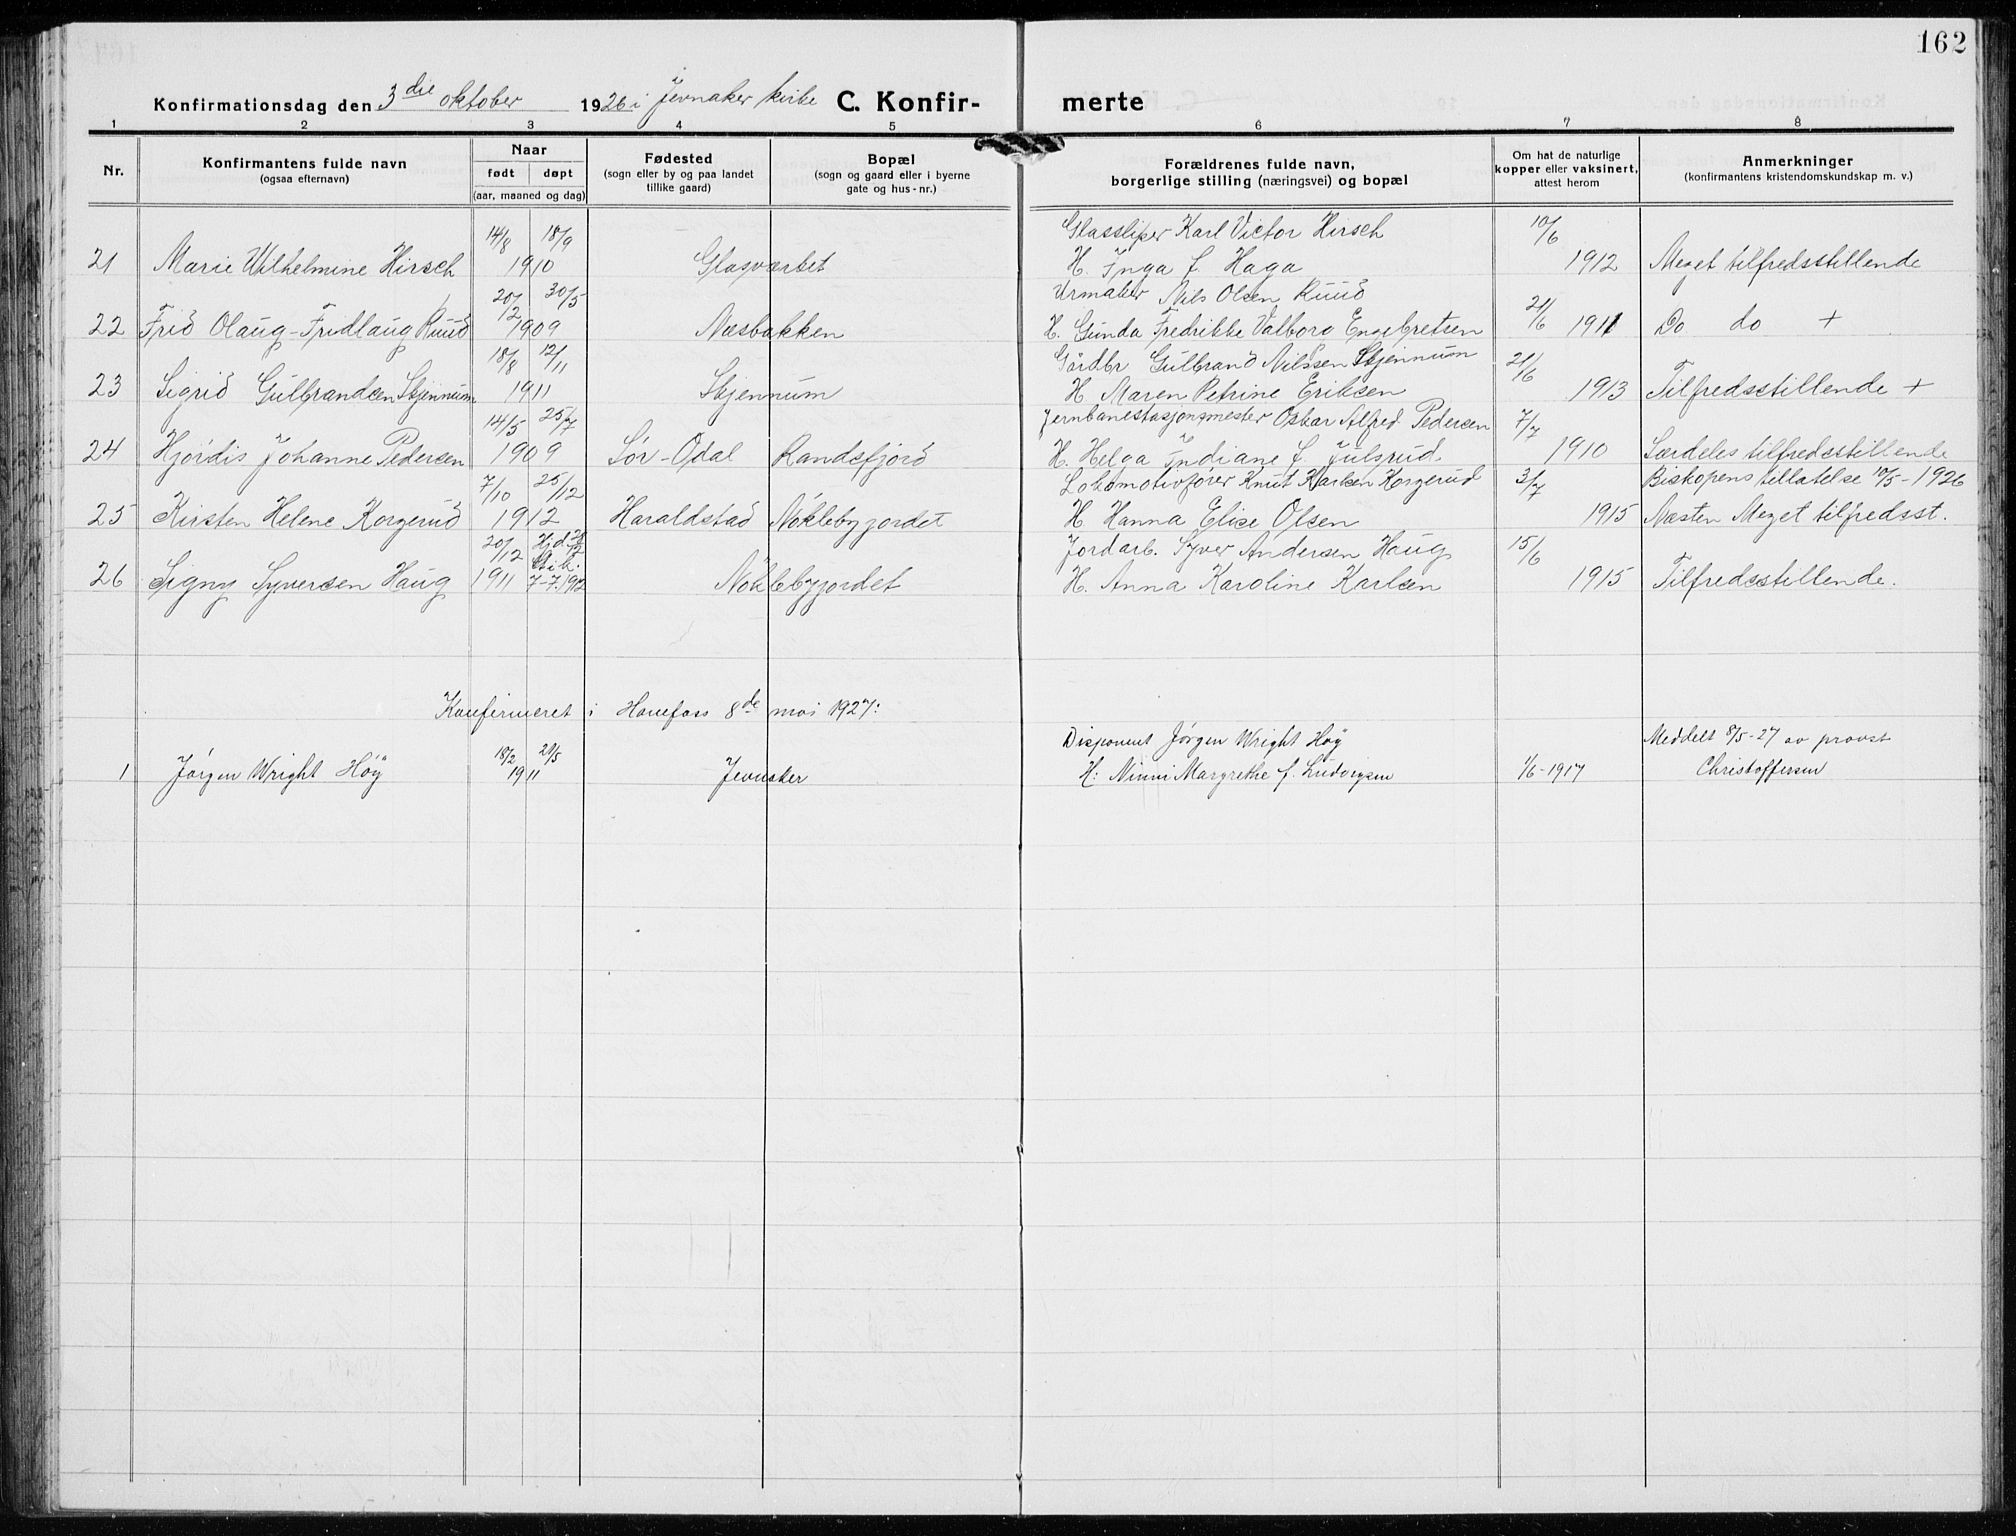 162
Konfirmationsdag den 3die oktober 1926 i Jevnaker kirke C. Konfir- merte
1 2 3 4 5 6 7 8
Nr.
Konfirmantens fulde navn
(ogsaa efternavn)
Naar
født døpt
(aar, maaned og dag)
Fødested
(sogn eller by og paa landet
tillike gaard)
Bopæl
(sogn og gaard eller i byerne
gate og hus-nr.)
Forældrenes fulde navn,
borgerlige stilling (næringsvei) og bopæl
Om hat de naturlige
kopper eller vaksinert,
attest herom
Anmerkninger
(konfirmantens kristendomskundskap m. v.)
14/8 18/9 Glassliper Karl Victor Hirsch 10/6
21 Marie Wilhelmine Hirsch 1910 Glasværket H. Inga f. Haga 1912 Meget tilfredsstillende
20/2 30/5 Urmaker Nils Olsen Ruud 21/6
22 Frid Olaug-Fridlaug Ruud 1909 Næsbakken H. Gunda Fredrikke Valborg Engebretsen 1911 Do do +
18/8 12/11 Gårdbr Gulbrand Nilssen Skjennum 21/6
23 Sigrid Gulbrandsen Skjennum 1911 Skjennum H Maren Petrine Eriksen 1913 Tilfredsstillende +
14/5 25/7 Jernbanestasjonsmester Oskar Alfred Pedersen 7/7
24 Hjørdis Johanne Pedersen 1909 Sør-Odal Randsfjord H. Helga Indiane f. Julsrud 1910 Særdeles tilfredsstillende
7/10 25/12 Lokomotivfører Knut Karlsen Korgerud 3/7 Biskopens tillatelse 10/5-1926
25 Kirsten Helene Korgerud 1912 Haraldstad Nøklebyjordet H Hanna Elise Olsen 1915 Næsten Meget tilfredsst.
20/12 Hjd. Jordarb. Syver Andersen Haug 15/6
26 Signy Syversen Haug 1911 7-7.1912 Nøklebyjordet H. Anna Karoline Karlsen 1915 Tilfredsstillende.
Konfirmeret i Hønefoss 8de mai 1927:
18/2 21/5 Disponent Jørgen Wright Høy Meddelt 8/5-27 av provst
1 Jørgen Wright Høy 1911 Jevnaker H: Ninni Margrethe f. Ludvigsen 1/6-1917 Christoffersen